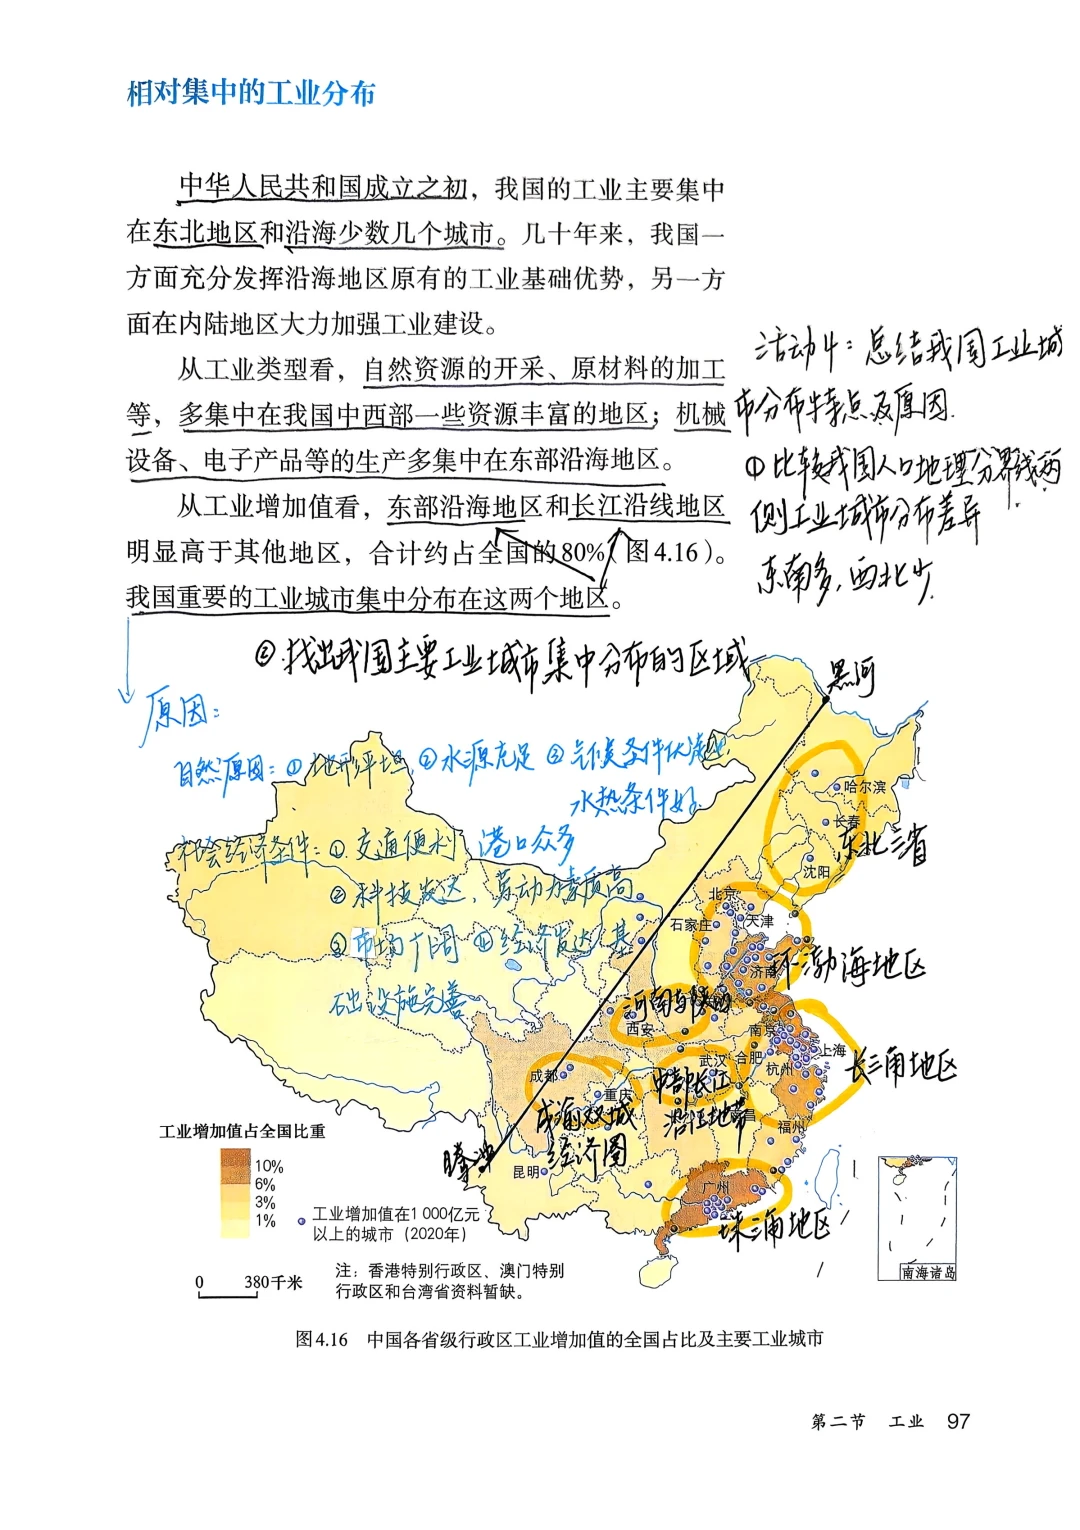 相对集中的工业分布
中华人民共和国成立之初，我国的工业主要集中
在东北地区和沿海少数几个城市。几十年来，我国一
方面充分发挥沿海地区原有的工业基础优势，另一方
面在内陆地区大力加强工业建设。
从工业类型看，自然资源的开采、原材料的加工
等，多集中在我国中西部一些资源丰富的地区；机械
设备、电子产品等的生产多集中在东部沿海地区。
从工业增加值看，东部沿海地区和长江沿线地区
明显高于其他地区，合计约占全国的80%（图4.16）。
我国重要的工业城市集中分布在这两个地区。
活动4：总结我国工业城
市分布特点及原因.
①比较我国人口地理分界线两
侧工业城市分布差异
东南多，西北少.
②找出我国主要工业城市集中分布的区域
原因：
自然原因：①地形平坦 ②水源充足 ③气候条件优越
水热条件好.
社会经济条件：①交通便利 港口众多
②科技发达，劳动力素质高
③市场广阔 ④经济发达（基
础设施完善
黑河
哈尔滨
长春
东北三省
沈阳
北京
天津
石家庄
济南
环渤海地区
河南与陕西
西安
南京
上海
合肥
杭州
武汉
长三角地区
成都
重庆
中部长江
沿江地带
成渝双城
经济圈
昌
福州
腾冲
昆明
广州
珠三角地区
工业增加值占全国比重
10%
6%
3%
1%
工业增加值在1 000亿元
以上的城市（2020年）
0 380千米
注：香港特别行政区、澳门特别
行政区和台湾省资料暂缺。
南海诸岛
图4.16 中国各省级行政区工业增加值的全国占比及主要工业城市
第二节 工业 97